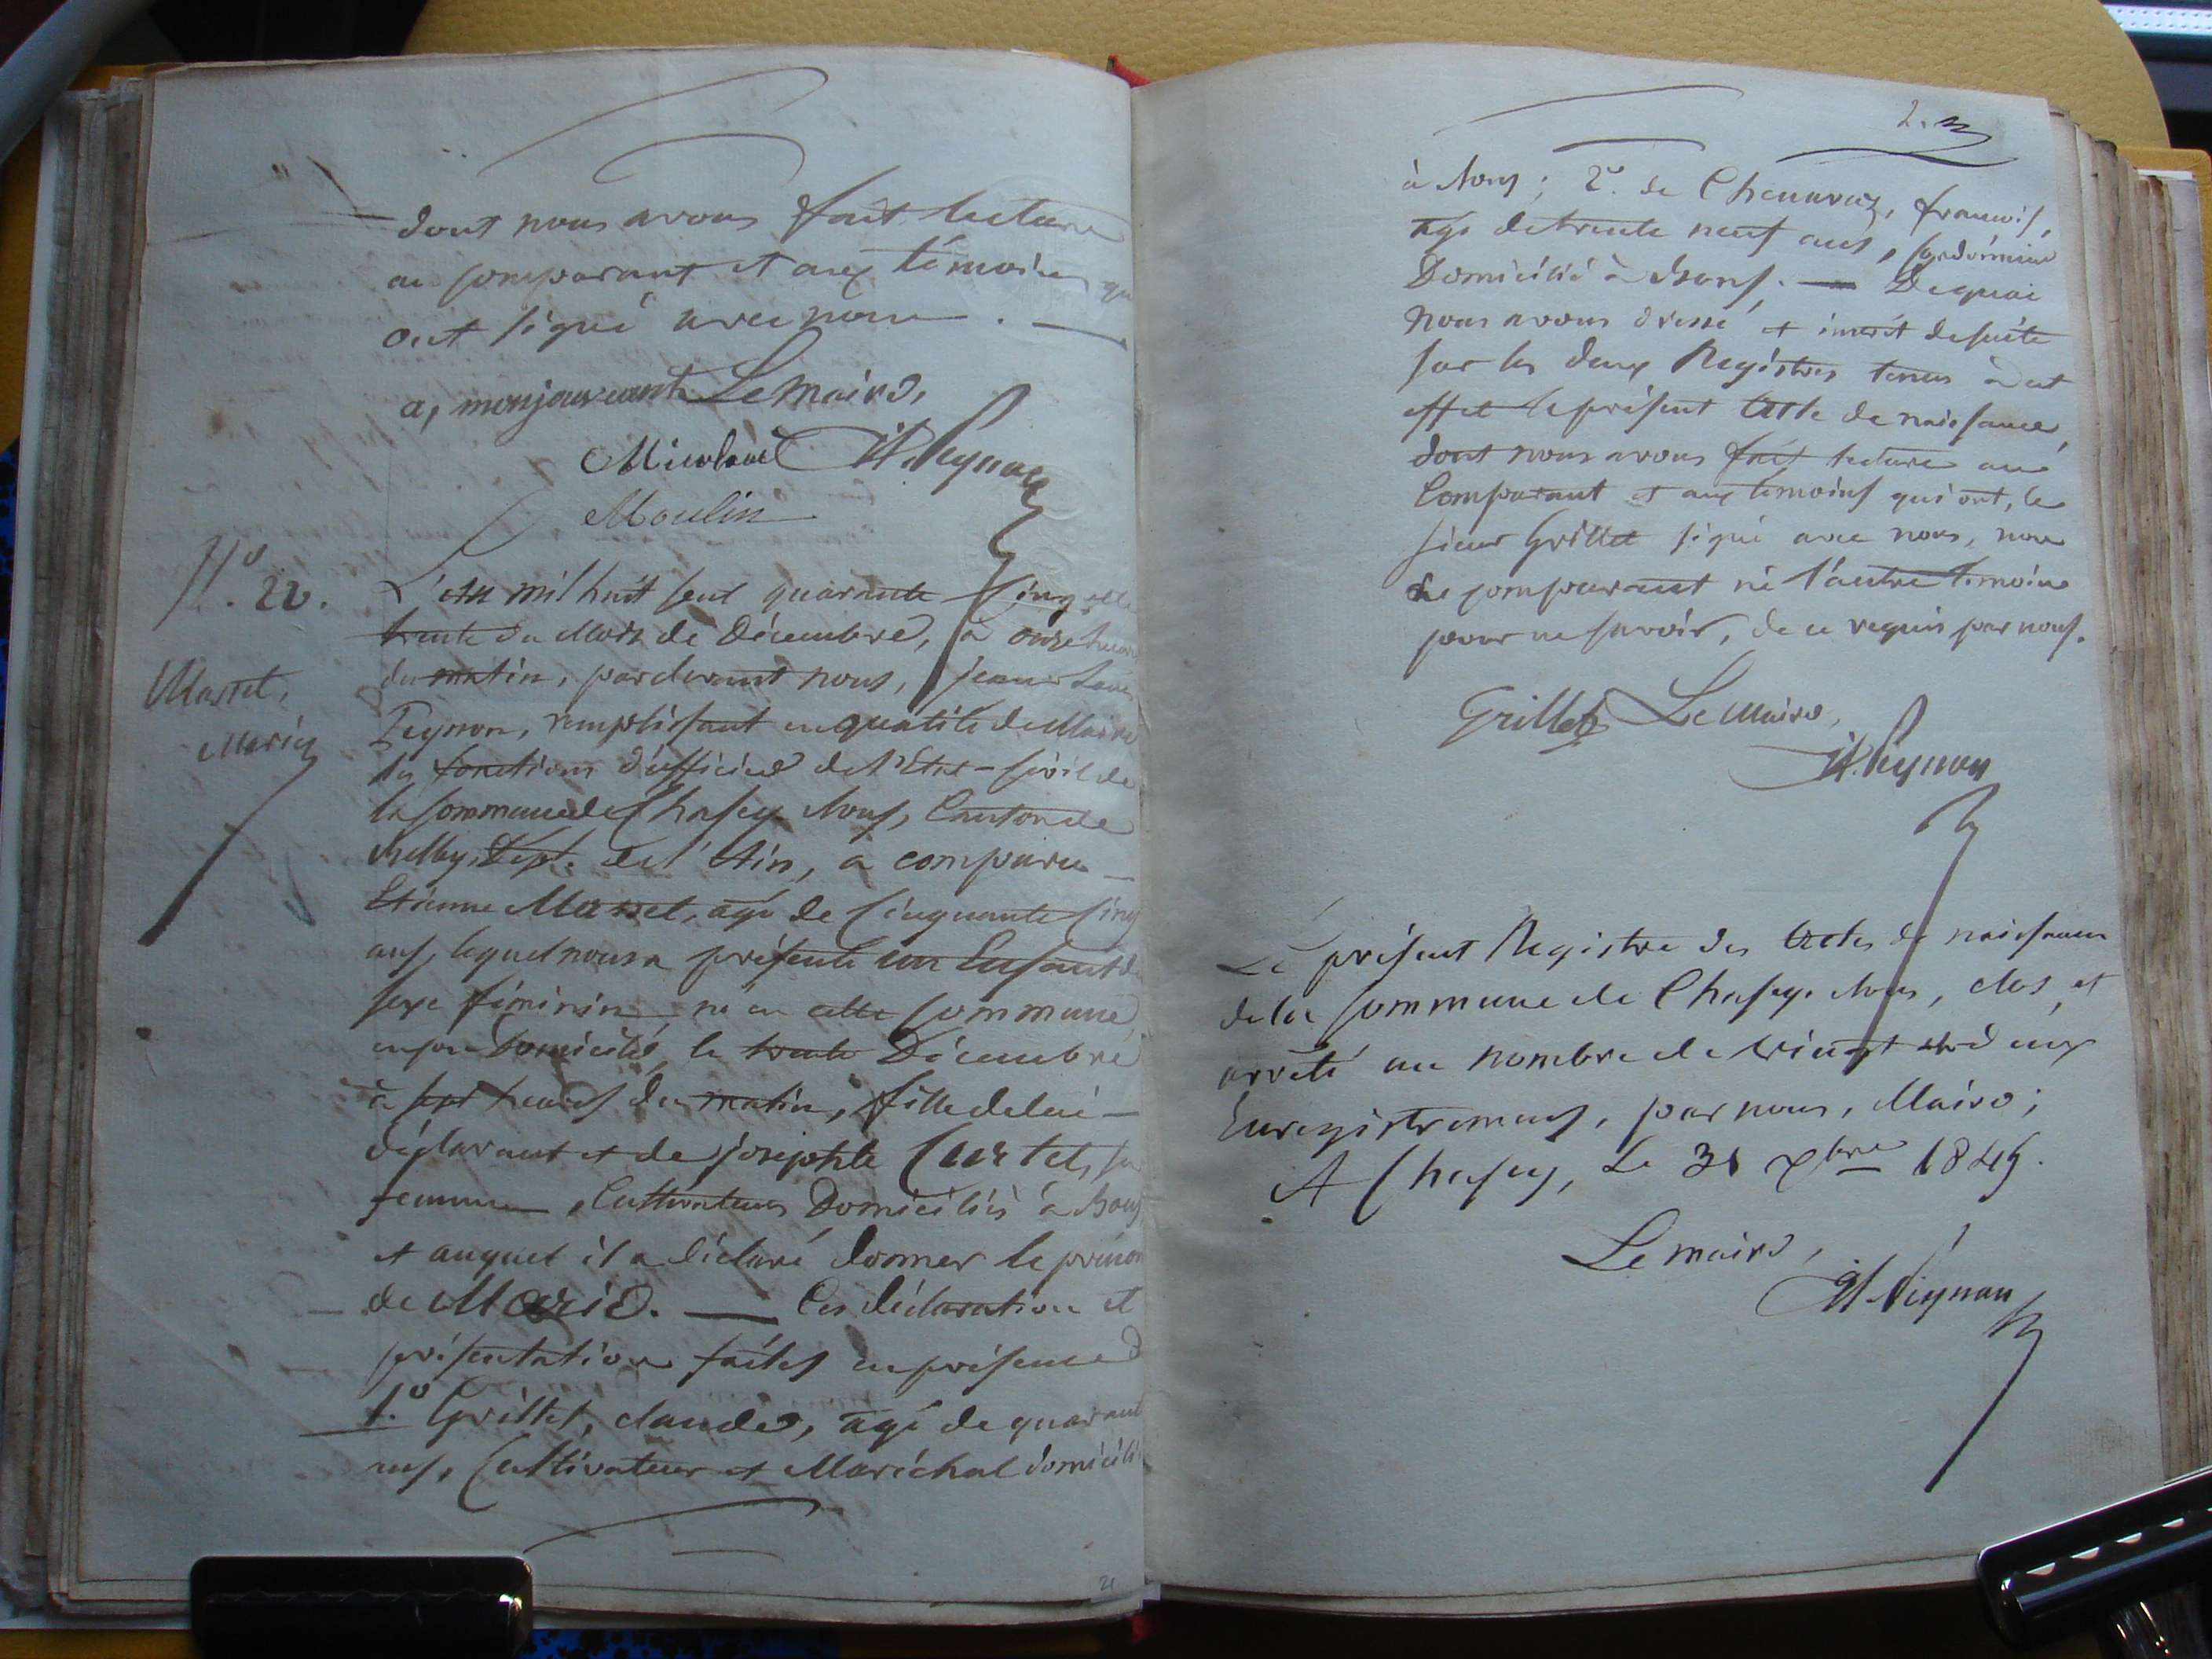 dont nous avons fait lecture
au comparant et aux témoins qui
ont signé avec nous.
a, monjauvant Le Maire,
Nicolas Peysson
Moulin
N.º 22.
Massel,
Marie
L'an mil huit cent quarante cinq et le
trente du Mois de Décembre, à onze heures
du matin, pardevant nous, jean
Peysson, remplissant en qualité de Maire
les fonctions d'officier de l'Etat-Civil de
la Commune de Chasey-Bons, Canton de
Belley, Dépt. de l'Ain, a comparu
Etienne Massel, agé de Cinquante Cinq
ans, lequel nous a présenté un Enfant de
sexe féminin, né en cette Commune,
en son Domicile, le trente Décembre
à sept heures du matin, fille de lui
déclarant et de josephte Curtet, sa
femme, Cultivateurs Domiciliés à Bons,
et auquel il a déclaré donner le prénom
de Marie. — Ces déclaration et
présentation faites en présence de
1.º Grillet, claude, agé de quarante
ans, Cultivateur et Maréchal domicilié
à Bons; 2.º de Chenavaz, françois,
agé de trente neuf ans, Cordonnier
Domicilié à Bons. — De quoi
Nous avons dressé et inscrit de suite
sur les deux Registres tenus à cet
effet le présent acte de naissance,
dont nous avons fait lecture au
Comparant et aux témoins qui ont, le
sieur Grillet signé avec nous, non
le comparant ni l'autre témoin
pour ne savoir, de ce requis par nous.
Grillet Le Maire,
Peysson
Le présent Registre des actes de naissances
de la Commune de Chasey-Bons, clos et
arrêté au nombre de vingt et deux
Enregistremens, par nous, Maire;
A Chasey, Le 31 Xbre 1845.
Le maire,
Peysson
21